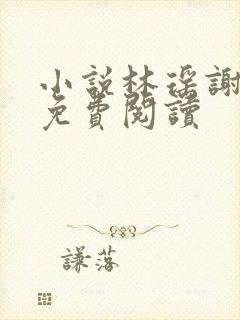 小說林瑤謝
免費閱讀
謙落